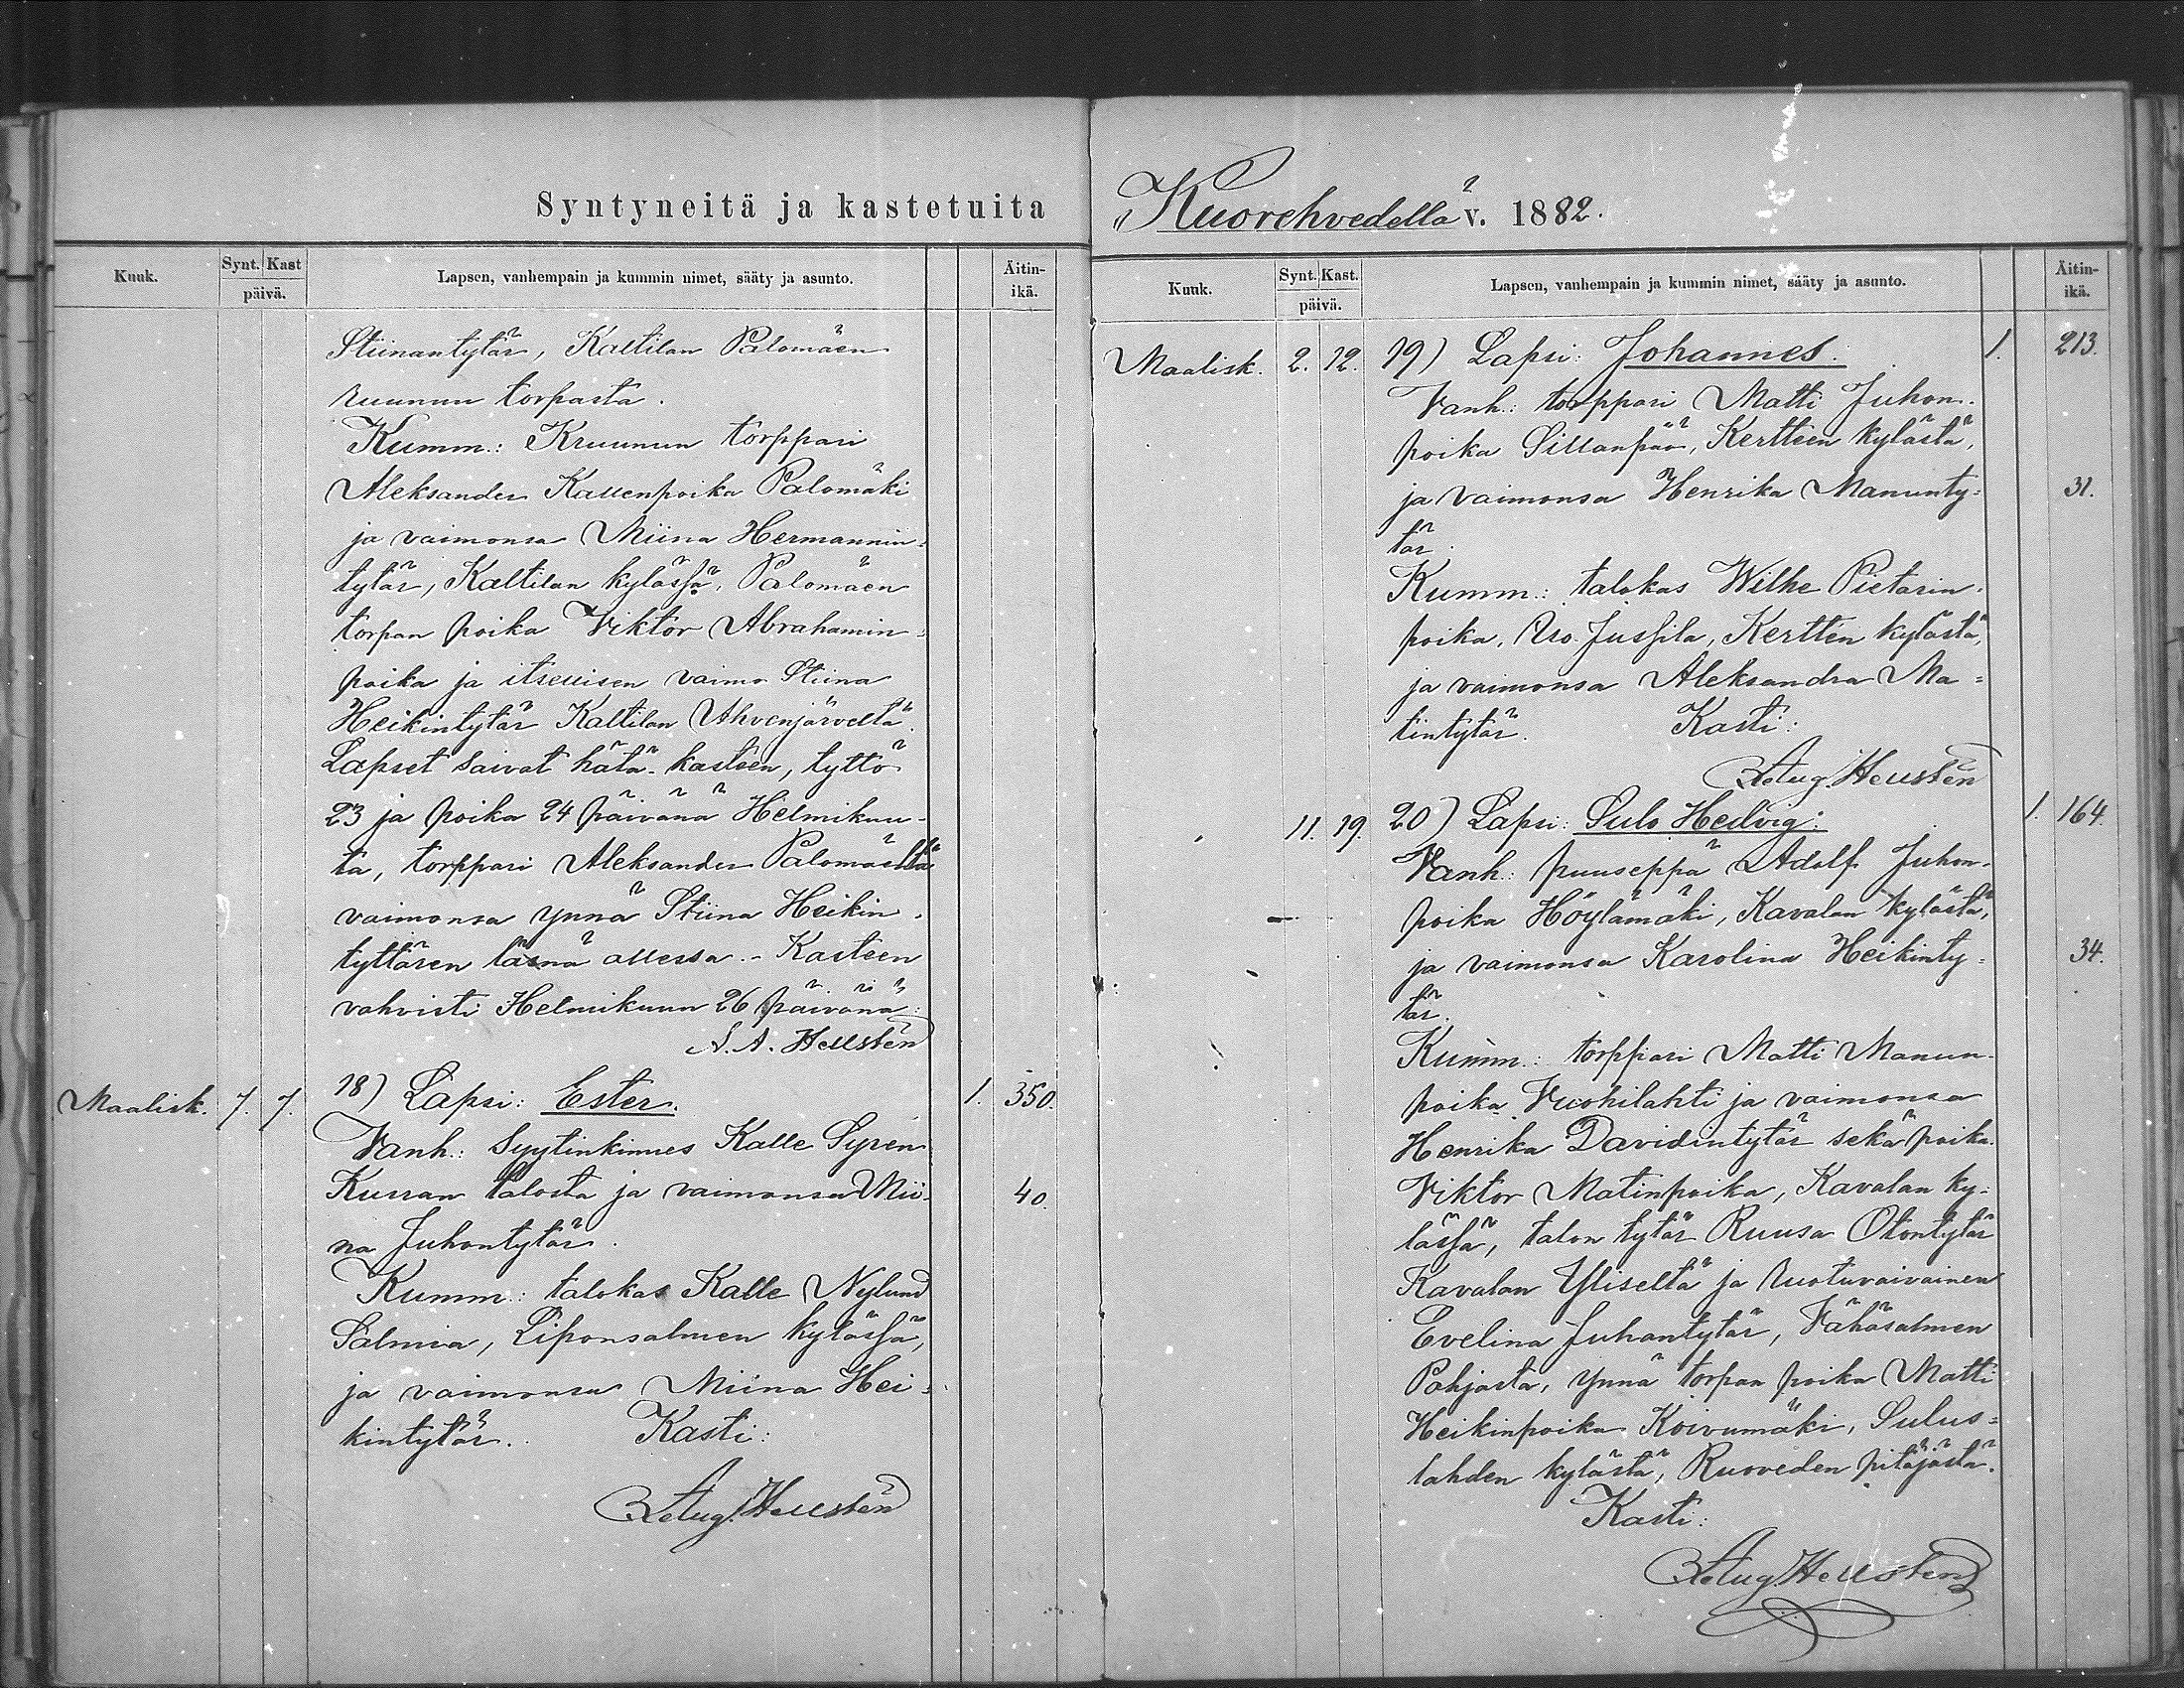 Syntyneitä ja kastetuita
Kuuk.
Synt. Kast
päivä.
Lapsen, vanhempain ja kummin nimet, sääty ja asunto.
Äitin-
ikä.
Stiinantytär, Kaltilan Palomäen
ruunun torpasta.
Kumm.: Kruunun torppari
Aleksander Kallenpoika Palomäki
ja vaimonsa Miina Hermannin-
tytär, Kaltilan kylässä, Palomäen
torpan poika Viktor Abrahamin-
poika ja itsellisen vaimo Stiina
Heikintytär Kaltilan Ahvenjärveltä.
Lapset saivat hätä-kasteen, tyttö
23 ja poika 24 päivänä Helmikuu-
ta, torppari Aleksander Palomäeltä
vaimonsa ynnä Stiina Heikin-
tyttären läsnä ollessa. - Kasteen
vahvisti Helmikuun 26 päivänä:
A. A. Hellstén
Maalisk. 7. 7. 18) Lapsi: Ester. 1. 350.
Vanh.: Syytinkimies Kalle Syren
Kurran talosta ja vaimonsa Mii- 40.
na Juhontytär.
Kumm.: talokas Kalle Nylund
Salmia, Liponsalmen kylässä,
ja vaimonsa Miina Hei-
kintytär. Kasti:
Aug. Hellstén
Kuorehvedellä v. 1882.
Kuuk.
Synt. Kast.
päivä.
Lapsen, vanhempain ja kummin nimet, sääty ja asunto.
Äitin-
ikä.
Maalisk. 2. 12. 19) Lapsi: Johannes. 1. 213.
Vanh.: torppari Matti Juhon-
poika Sillanpää, Kertteen kylästä,
ja vaimonsa Henrika Manunty- 31.
tär.
Kumm.: talokas Wilhe Pietarin-
poika, Iso Jussila, Kertten kylästä,
ja vaimonsa Aleksandra Ma-
tintytär. Kasti:
Aug. Hellstén
11. 19. 20) Lapsi: Sulo Hedvig: 1. 164.
Vanh.: puuseppä Adolf Juhon-
poika Höylämäki, Kavalan kylästä,
ja vaimonsa Karolina Heikinty- 34.
tär.
Kumm.: torppari Matti Manun-
poika Vuohilahti ja vaimonsa
Henrika Davidintytär sekä poika
Viktor Matinpoika, Kavalan ky-
lässä, talon tytär Ruusa Otontytär
Kavalan Yliseltä ja ruotuvaivainen
Evelina Juhontytär, Vähäsalmen
Pohjasta, ynnä torpan poika Matti
Heikinpoika Koivumäki, Sulus-
lahden kylästä, Ruoveden pitäjästä.
Kasti:
Aug. Hellstén